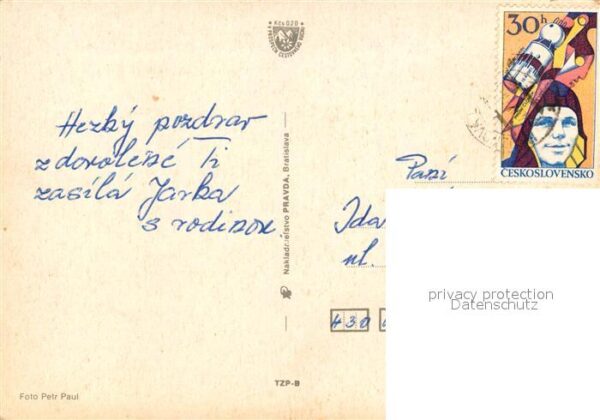 Kčs 0,20
30h
ČESKOSLOVENSKO
Hezký pozdrav
z dovolené Ti
zasílá Jarka
s rodinou
Nakladatelství PRAVDA, Bratislava
Paní
Ida
ul.
430
privacy protection
Datenschutz
TZP-B
Foto Petr Paul